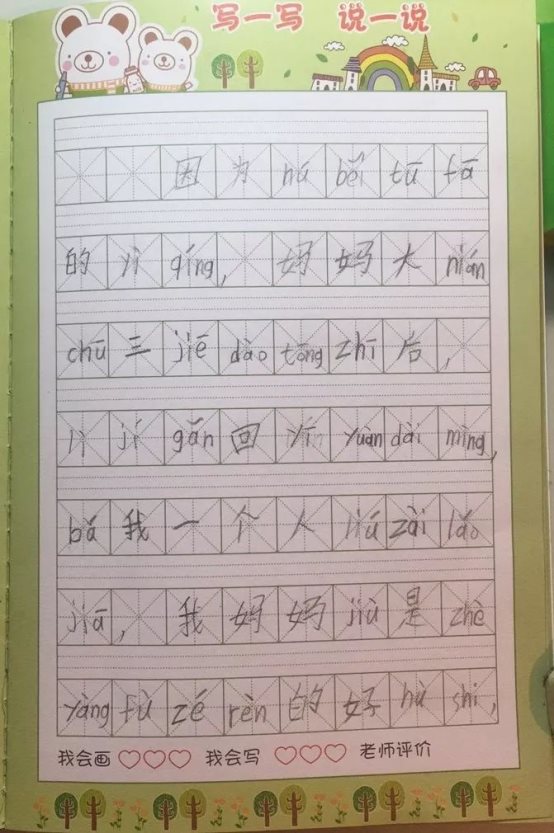 写一写 说一说
因为hú běi tū fā
的yì qíng，妈妈大nián
chū三jiē dào tōng zhī后，
lì jí gǎn回yī yuàn dài mìng，
bá我一个人liú zài lǎo
jiā，我妈妈jiù是zhè
yàng fù zé rèn的好hù shi，
我会画 我会写 老师评价